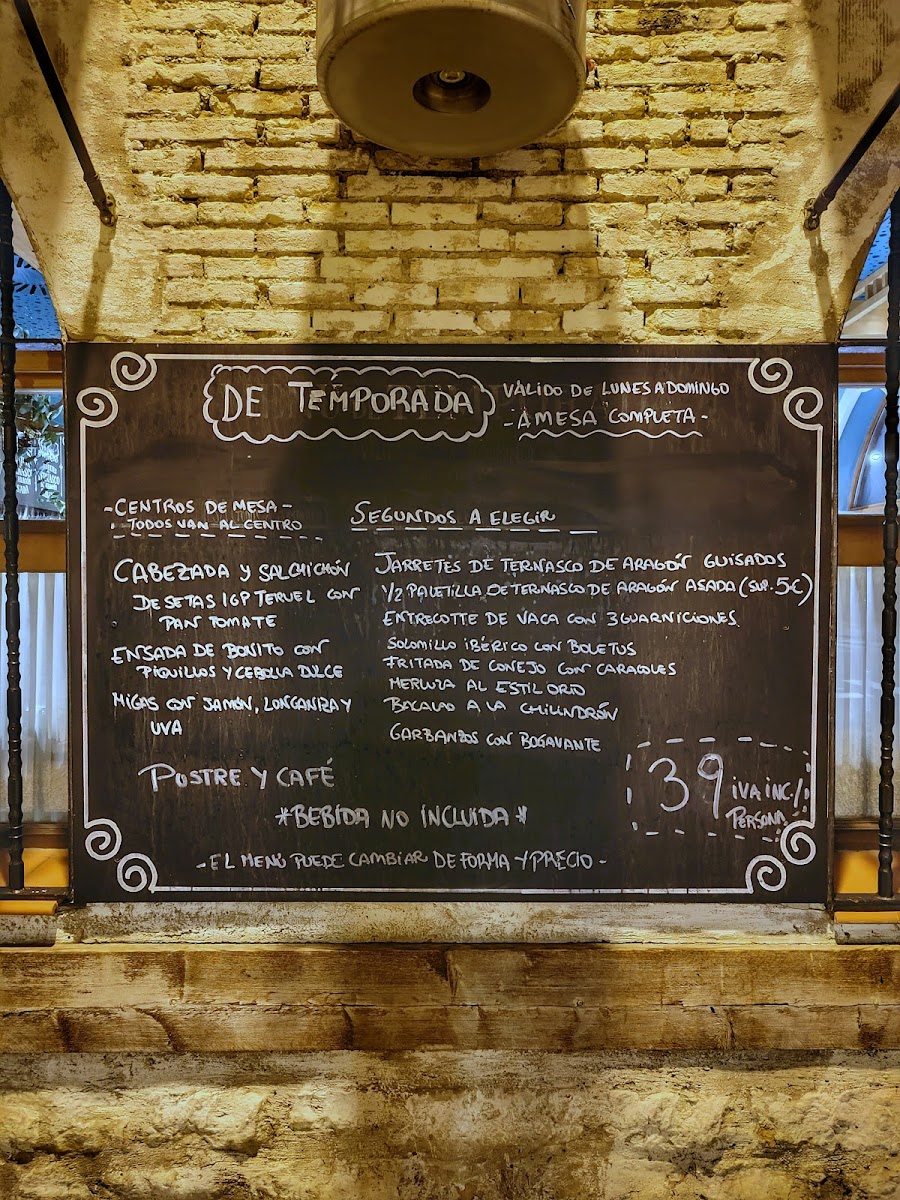 DE TEMPORADA
VÁLIDO DE LUNES A DOMINGO
- A MESA COMPLETA -
- CENTROS DE MESA -
TODOS VAN AL CENTRO
CABEZADA Y SALCHICHÓN
DE SETAS IGP TERUEL CON
PAN TOMATE
ENSADA DE BONITO CON
PIQUILLOS Y CEBOLLA DULCE
MIGAS CON JAMÓN, LONGANIZA Y
UVA
SEGUNDOS A ELEGIR
JARRETES DE TERNASCO DE ARAGÓN GUISADOS
1/2 PALETILLA DE TERNASCO DE ARAGÓN ASADA (SUP. 5€)
ENTRECOTTE DE VACA CON 3 GUARNICIONES
SOLOMILLO IBÉRICO CON BOLETUS
FRITADA DE CONEJO CON CARACOLES
MERLUZA AL ESTIL ORIO
BACALAO A LA CHILINDRÓN
GARBANZOS CON BOGAVANTE
POSTRE Y CAFÉ
*BEBIDA NO INCLUIDA*
39 IVA INC./
PERSONA
- EL MENÚ PUEDE CAMBIAR DE FORMA Y PRECIO -